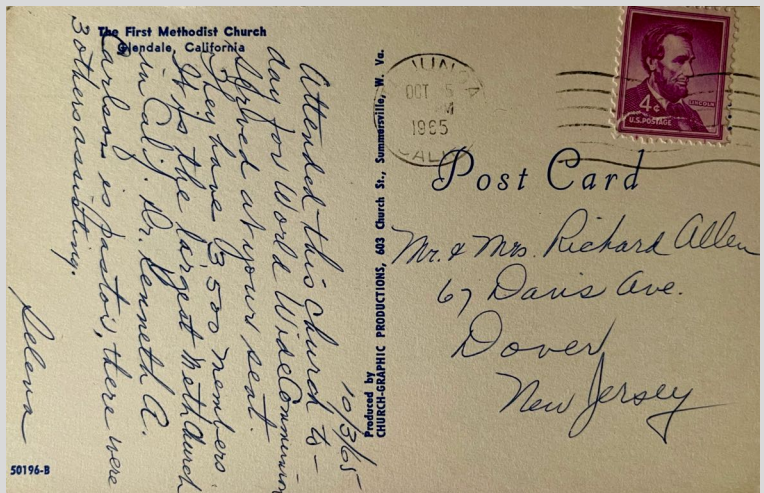 The First Methodist Church
Glendale, California
10/3/65
Attended this Church to-
day for World Wide Communion
Served at your seat.
They have 3500 members.
It is the largest Meth Church
in Calif. Dr. Kenneth A.
Carlson is pastor, there were
3 others assisting.
Selena
50196-B
Produced by
CHURCH-GRAPHIC PRODUCTIONS, 603 Church St., Summersville, W. Va.
OCT 5
M
1965
CALIF
4¢
LINCOLN
U.S. POSTAGE
Post Card
Mr. & Mrs. Richard Allen
67 Davis Ave.
Dover
New Jersey